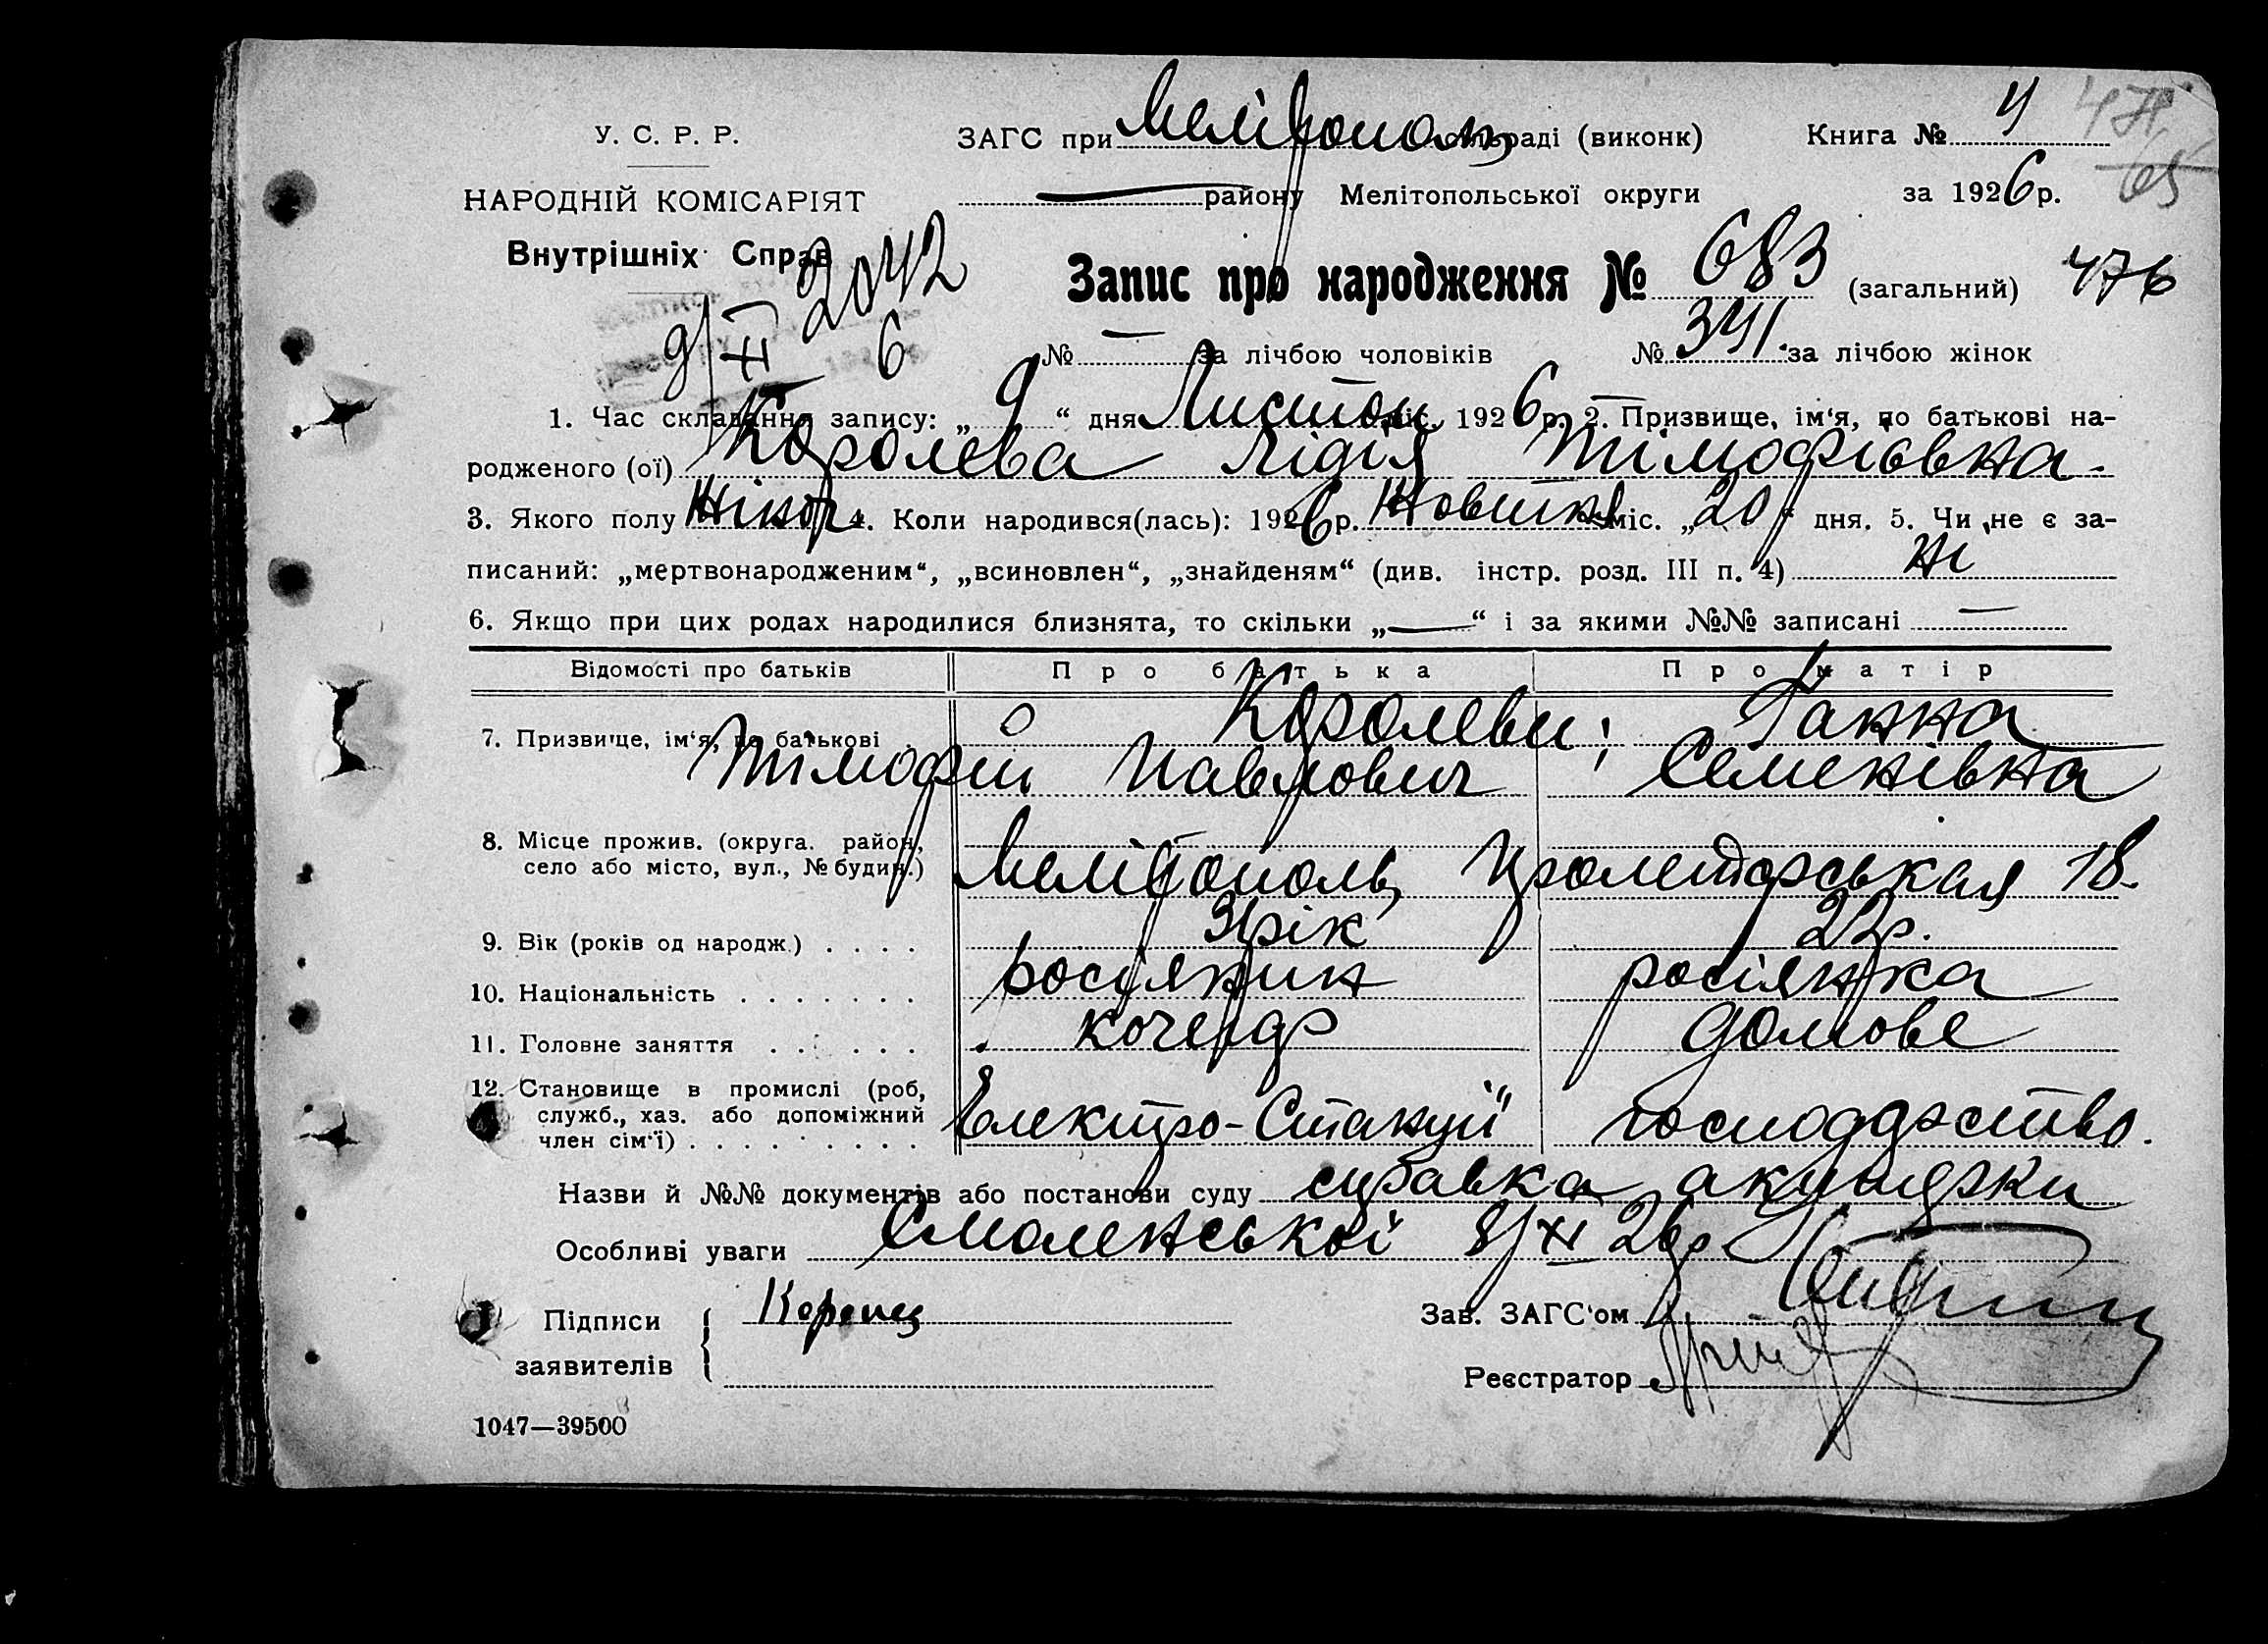 У. С. Р. Р.
ЗАГС при Меліtополь сільраді (виконк)
Книга № 4
НАРОДНІЙ КОМІСАРІЯТ
— району Мелітопольської округи
за 1926 р.
Внутрішніх Справ
2042
9/XI 6
Запис про народження № 683 (загальний) 476
№ — за лічбою чоловіків № 341. за лічбою жінок
1. Час складання запису: „ 9 “ дня Листоп міс. 1926 р. 2. Призвище, ім‘я, по батькові на-
родженого (ої) Королева Лідія Тімофіівна.
3. Якого полу жіноч 4. Коли народився(лась): 1926 р. Жовтня міс. „ 20 “ дня. 5. Чи не є за-
писаний: „мертвонародженим“, „всиновлен“, „знайденям“ (див. інстр. розд. III п. 4) ні
6. Якщо при цих родах народилися близнята, то скільки „ — “ і за якими №№ записані —
Відомості про батьків Про батька Про матір
7. Призвище, ім‘я, по батькові . Королеви; Ганна
Тімофій Павлович Семенівна
8. Місце прожив. (округа. район,
село або місто, вул., № будин.) Мелітополь, Пролетарськая 18.
9. Вік (років од народж.) . . . . 31 рік 22 р.
10. Національність . . . . . . . росіянин росіянка
11. Головне заняття . . . . . . кочегар домове
12. Становище в промислі (роб,
служб., хаз. або допоміжний
член сім‘ї) . . . . . . . . . Електро-Станції господарство.
Назви й №№ документів або постанови суду справка акушерки
Особливі уваги Смоленської 8/XI 26 р.
Підписи
заявителів
Зав. ЗАГС‘ом
Реєстратор
1047—39500